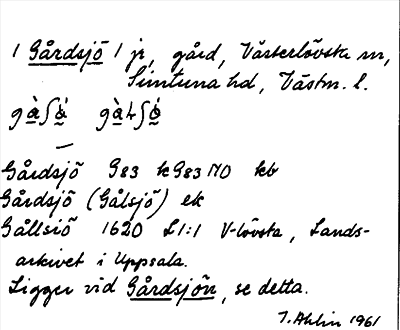 1 Gårdsjö 1 jr, gård, Västerlövsta sn,
Simtuna hd, Västm. l.
Gårdsjö G83 kG83 NO kb
Gårdsjö (Gålsjö) ek
Gållsiö 1620 L1:1 V-lövsta, Lands-
arkivet i Uppsala.
Ligger vid Gårdsjön, se detta.
I. Ahlin 1961